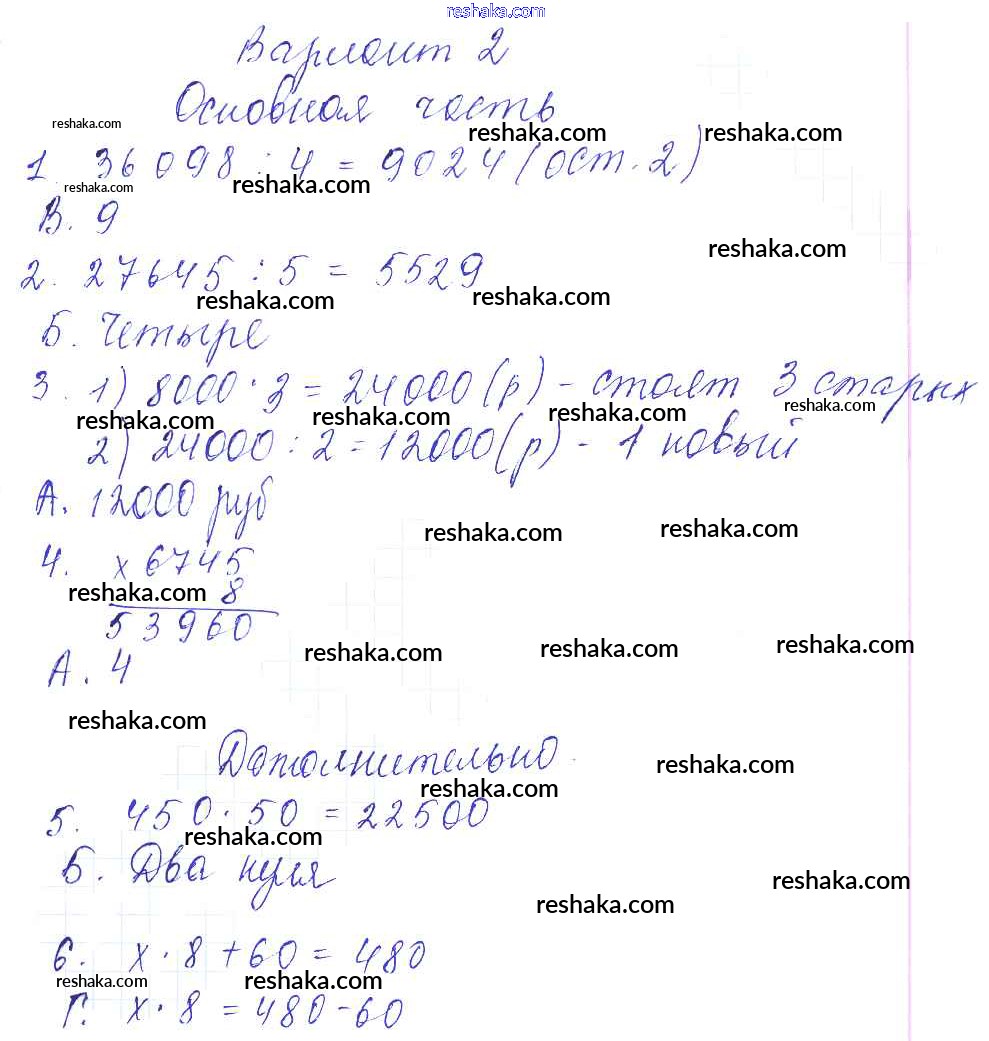 reshaka.com
Вариант 2
Основная часть
reshaka.com reshaka.com reshaka.com
1. 36098 : 4 = 9024 (ост. 2)
reshaka.com reshaka.com
В. 9
reshaka.com
2. 27645 : 5 = 5529
reshaka.com reshaka.com
Б. Четыре
3. 1) 8000 · 3 = 24000 (р) - стоят 3 старых
reshaka.com reshaka.com reshaka.com reshaka.com
2) 24000 : 2 = 12000 (р) - 1 новый
А. 12000 руб
reshaka.com reshaka.com
4. х 6745
reshaka.com 8
53960
reshaka.com reshaka.com reshaka.com
А. 4
reshaka.com
Дополнительно
reshaka.com reshaka.com
5. 450 · 50 = 22500
reshaka.com
Б. Два нуля
reshaka.com reshaka.com
6. х · 8 + 60 = 480
reshaka.com reshaka.com
Г. х · 8 = 480 - 60